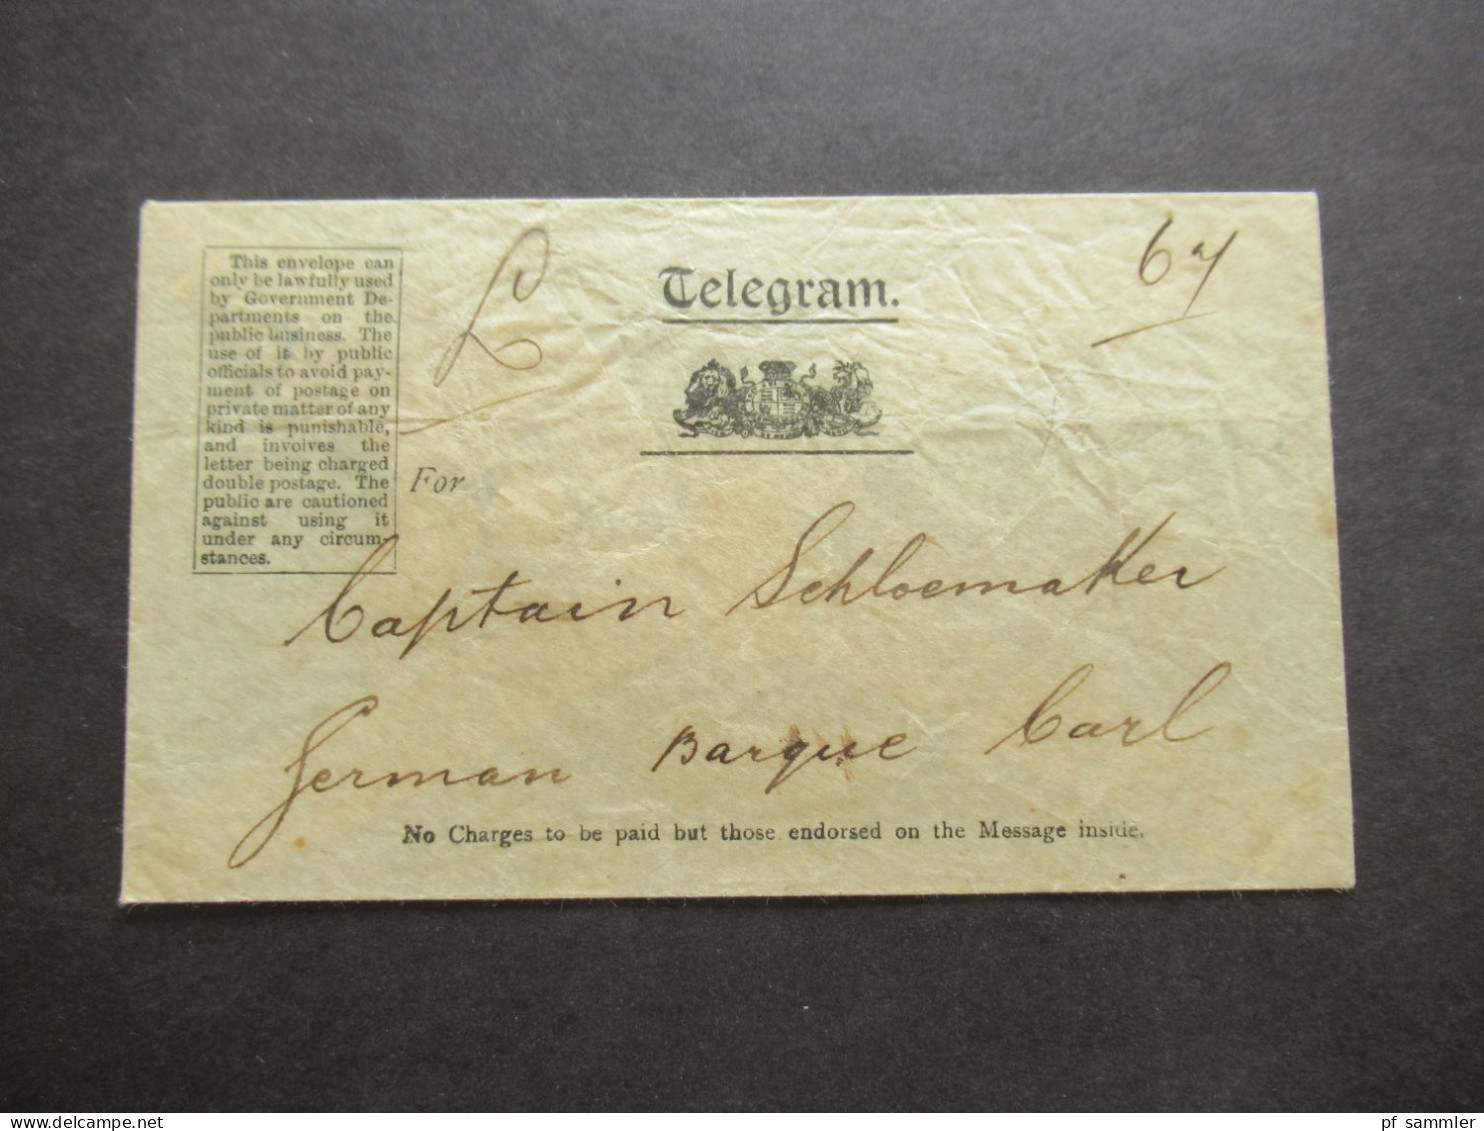 This envelope can
only be lawfully used
by Government De-
partments on the
public business. The
use of it by public
officials to avoid pay-
ment of postage on
private matter of any
kind is punishable,
and involves the
letter being charged
double postage. The
public are cautioned
against using it
under any circum-
stances.
Telegram.
For
Captain Schloemaker
German Barque Carl
No Charges to be paid but those endorsed on the Message inside.
www.delcampe.net
pf_sammler